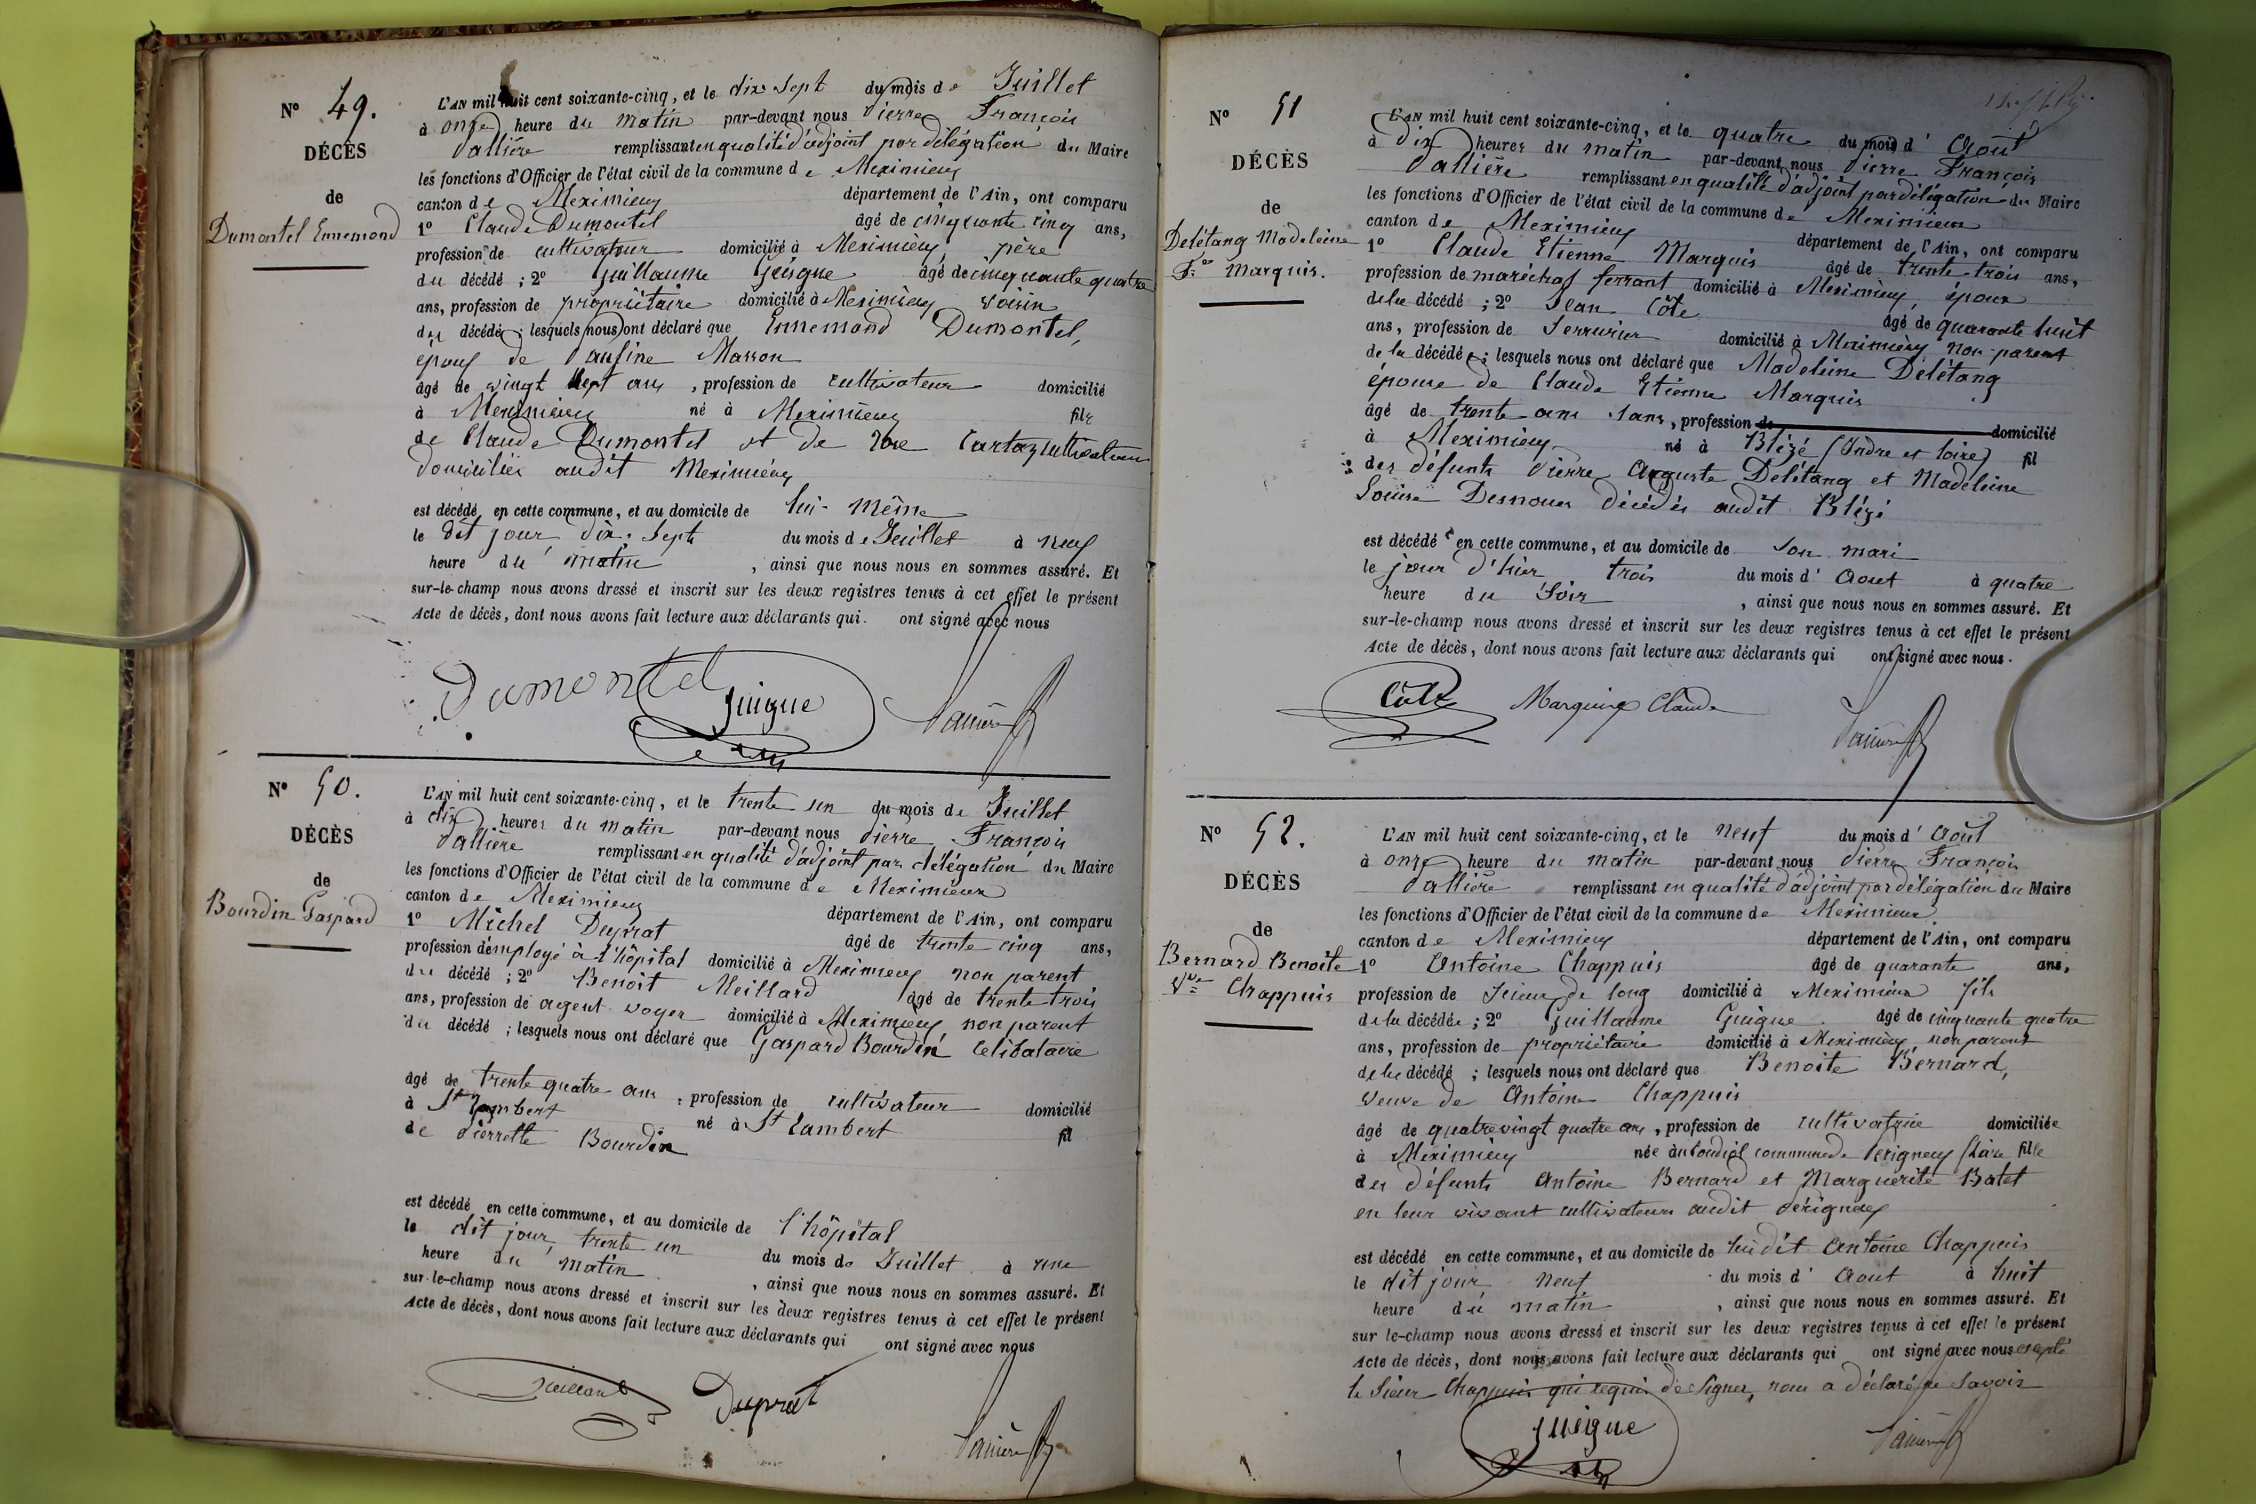 N° 49.
DÉCÈS
de
Dumontel Ennemond
L'AN mil huit cent soixante-cinq, et le dix Sept du mois de Juillet
à onze heure du matin par-devant nous Pierre François
Pallière remplissant en qualité d'adjoint par délégation du Maire
les fonctions d'Officier de l'état civil de la commune de Meximieux
canton de Meximieux département de l'Ain, ont comparu
1° Claude Dumontel âgé de cinquante cinq ans,
profession de cultivateur domicilié à Meximieux, père
du décédé ; 2° Guillaume Guigue âgé de cinquante quatre
ans, profession de propriétaire domicilié à Meximieux voisin
du décédé ; lesquels nous ont déclaré que Ennemond Dumontel,
époux de Pauline Masson
âgé de vingt sept ans, profession de cultivateur domicilié
à Meximieux né à Meximieux fils
de Claude Dumontel et de Rose Cartaz cultivateurs
domiciliés audit Meximieux
est décédé en cette commune, et au domicile de lui-même
le dit jour dix-Sept du mois de Juillet à neuf
heure du matin, ainsi que nous nous en sommes assuré. Et
sur-le-champ nous avons dressé et inscrit sur les deux registres tenus à cet effet le présent
Acte de décès, dont nous avons fait lecture aux déclarants qui ont signé avec nous
Dumontel Guigue Pallière
N° 50.
DÉCÈS
de
Bourdin Gaspard
L'AN mil huit cent soixante-cinq, et le trente un du mois de Juillet
à dix heures du matin par-devant nous Pierre François
Pallière remplissant en qualité d'adjoint par délégation du Maire
les fonctions d'Officier de l'état civil de la commune de Meximieux
canton de Meximieux département de l'Ain, ont comparu
1° Michel Duprat âgé de trente cinq ans,
profession d'employé à l'hôpital domicilié à Meximieux non parent
du décédé ; 2° Benoit Meillard âgé de trente trois
ans, profession de agent voyer domicilié à Meximieux non parent
du décédé ; lesquels nous ont déclaré que Gaspard Bourdin célibataire
âgé de trente quatre ans, profession de cultivateur domicilié
à St Lambert né à St Lambert fil
de Pierrette Bourdin
est décédé en cette commune, et au domicile de l'hôpital
le dit jour trente un du mois de Juillet à une
heure du matin, ainsi que nous nous en sommes assuré. Et
sur-le-champ nous avons dressé et inscrit sur les deux registres tenus à cet effet le présent
Acte de décès, dont nous avons fait lecture aux déclarants qui ont signé avec nous
Meillard Duprat Pallière
N° 51
DÉCÈS
de
Delétang Madeleine
Fe Marquis.
L'AN mil huit cent soixante-cinq, et le quatre du mois d'Août
à dix heures du matin par-devant nous Pierre François
Pallière remplissant en qualité d'adjoint par délégation du Maire
les fonctions d'Officier de l'état civil de la commune de Meximieux
canton de Meximieux département de l'Ain, ont comparu
1° Claude Etienne Marquis âgé de trente-trois ans,
profession de maréchal ferrant domicilié à Meximieux, époux
de la décédé ; 2° Jean Côte âgé de quarante huit
ans, profession de Serrurier domicilié à Meximieux non-parent
de la décédée ; lesquels nous ont déclaré que Madeleine Delétang
épouse de Claude Etienne Marquis
âgé de trente ans sans, profession de domicilié
à Meximieux né à Blézé (Indre et loire) fil
des défunts Pierre Auguste Delétang et Madeleine
Louise Desnoues décédés audit Blézé
est décédée en cette commune, et au domicile de son mari
le jour d'hier trois du mois d'Aout à quatre
heure du Soir, ainsi que nous nous en sommes assuré. Et
sur-le-champ nous avons dressé et inscrit sur les deux registres tenus à cet effet le présent
Acte de décès, dont nous avons fait lecture aux déclarants qui ont signé avec nous.
Côte Marquis Claude Pallière
N° 52.
DÉCÈS
de
Bernard Benoîte
Vve Chappuis
L'AN mil huit cent soixante-cinq, et le neuf du mois d'Août
à onze heure du matin par-devant nous Pierre François
Pallière remplissant en qualité d'adjoint par délégation du Maire
les fonctions d'Officier de l'état civil de la commune de Meximieux
canton de Meximieux département de l'Ain, ont comparu
1° Antoine Chappuis âgé de quarante ans,
profession de Scieur de long domicilié à Meximieux fils
de la décédée ; 2° Guillaume Guigue âgé de cinquante quatre
ans, profession de propriétaire domicilié à Meximieux, non parent
de la décédé ; lesquels nous ont déclaré que Benoîte Bernard,
veuve de Antoine Chappuis
âgé de quatrevingt quatre ans, profession de cultivatrice domiciliée
à Meximieux née à commune de Périgneux (Loire fille
des défunts Antoine Bernard et Marguerite Batet
en leur vivant cultivateurs audit Périgneux
est décédé en cette commune, et au domicile de sudit Antoine Chappuis
le dit jour neuf du mois d'Aout à huit
heure du matin, ainsi que nous nous en sommes assuré. Et
sur-le-champ nous avons dressé et inscrit sur les deux registres tenus à cet effet le présent
Acte de décès, dont nous avons fait lecture aux déclarants qui ont signé avec nous excepté
le Sieur Chappuis qui requis de signer, nous a déclaré ne Savoir
Guigue Pallière